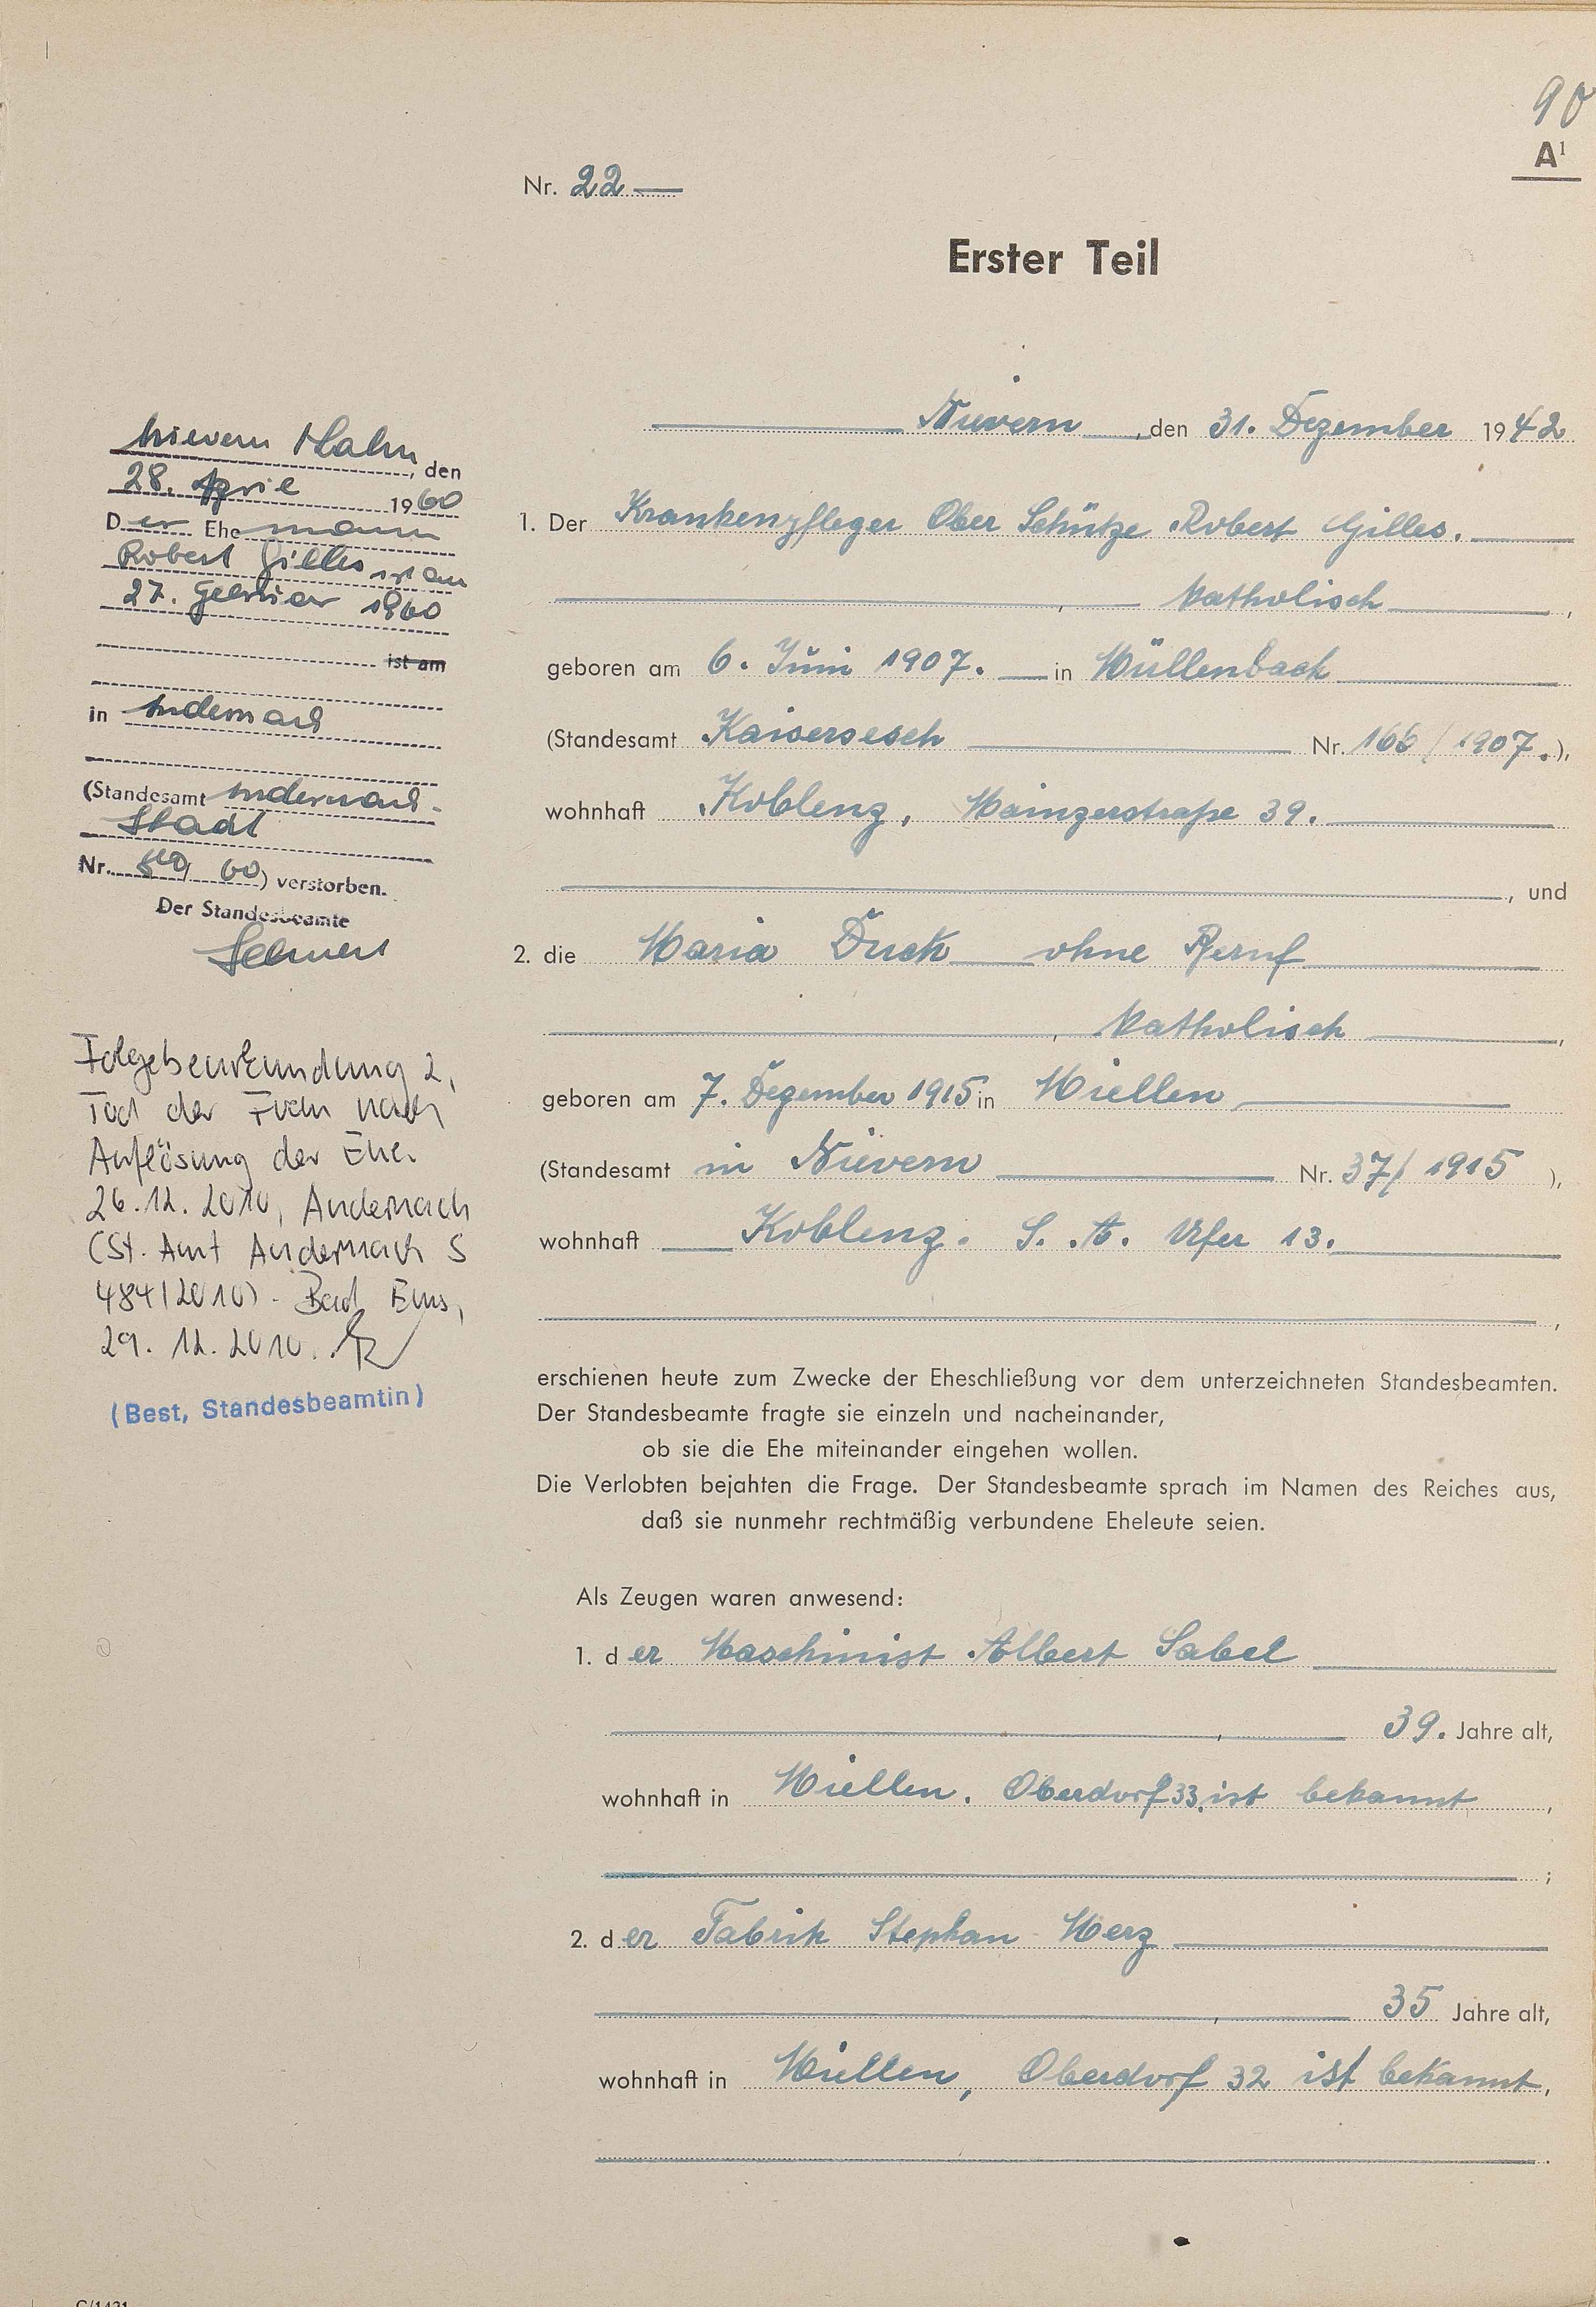 90
A¹
Nr. 22
Erster Teil
Nievern, den 31. Dezember 1942
1. Der Krankenpfleger Ober Schütze Robert Gilles.
, katholisch,
geboren am 6. Juni 1907. in Müllenbach
(Standesamt Kaisersesch Nr. 166/1907.),
wohnhaft Koblenz, Mainzerstraße 39.
, und
2. die Maria Duck ohne Beruf
, katholisch,
geboren am 7. Dezember 1915 in Miellen
(Standesamt in Nievern Nr. 37/1915),
wohnhaft Koblenz. S. A. Ufer 13.
,
erschienen heute zum Zwecke der Eheschließung vor dem unterzeichneten Standesbeamten.
Der Standesbeamte fragte sie einzeln und nacheinander,
ob sie die Ehe miteinander eingehen wollen.
Die Verlobten bejahten die Frage. Der Standesbeamte sprach im Namen des Reiches aus,
daß sie nunmehr rechtmäßig verbundene Eheleute seien.
Als Zeugen waren anwesend:
1. der Maschinist Albert Sabel
, 39. Jahre alt,
wohnhaft in Miellen. Oberdorf 33, ist bekannt,
;
2. der Fabrik Stephan Merz
, 35 Jahre alt,
wohnhaft in Miellen, Oberdorf 32 ist bekannt,
.
Nievern Lahn, den
28. April 1960
Der Ehemann
Robert Gilles ist am
27. Februar 1960
ist am
in Andernach
(Standesamt Andernach-
Stadt
Nr. 60) verstorben.
Der Standesbeamte
Folgebeurkundung 2,
Tod der Frau nach
Auflösung der Ehe.
26.12.2010, Andernach
(St. Amt Andernach S
484/2010) - Bad Ems,
29.12.2010.
(Best, Standesbeamtin)
C/1431